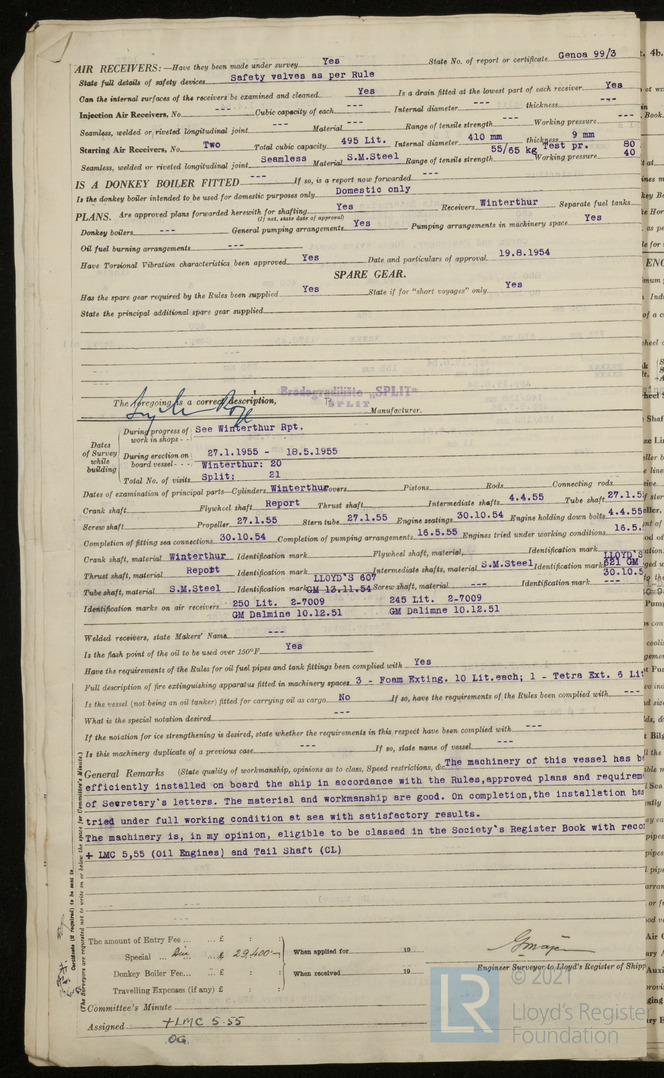 AIR RECEIVERS:—Have they been made under survey Yes State No. of report or certificate Genoa 99/3
State full details of safety devices Safety valves as per Rule
Can the internal surfaces of the receivers be examined and cleaned Yes Is a drain fitted at the lowest part of each receiver Yes
Injection Air Receivers, No. --- Cubic capacity of each --- Internal diameter --- thickness ---
Seamless, welded or riveted longitudinal joint --- Material --- Range of tensile strength --- Working pressure ---
Starting Air Receivers, No. Two Total cubic capacity 495 Lit. Internal diameter 410 mm thickness 9 mm
Seamless, welded or riveted longitudinal joint Seamless Material S.M.Steel Range of tensile strength 55/65 kg Test pr. 80 Working pressure 40
IS A DONKEY BOILER FITTED --- If so, is a report now forwarded ---
Is the donkey boiler intended to be used for domestic purposes only Domestic only
PLANS. Are approved plans forwarded herewith for shafting Yes Receivers Winterthur Separate fuel tanks
(If not, state date of approval)
Donkey boilers --- General pumping arrangements Yes Pumping arrangements in machinery space Yes
Oil fuel burning arrangements ---
Have Torsional Vibration characteristics been approved Yes Date and particulars of approval 19.8.1954
SPARE GEAR.
Has the spare gear required by the Rules been supplied Yes State if for "short voyages" only Yes
State the principal additional spare gear supplied
Brodogradilište „SPLIT"
The foregoing is a correct description,
SPLIT
Manufacturer.
Dates of Survey while building
During progress of work in shops - - See Winterthur Rpt.
During erection on board vessel - - - 27.1.1955 - 18.5.1955
Winterthur: 20
Total No. of visits Split: 21
Dates of examination of principal parts—Cylinders Winterthur Covers Pistons Rods Connecting rods
Crank shaft Flywheel shaft Report Thrust shaft Intermediate shafts 4.4.55 Tube shaft 27.1.5
Screw shaft Propeller 27.1.55 Stern tube 27.1.55 Engine seatings 30.10.54 Engine holding down bolts 4.4.55
Completion of fitting sea connections 30.10.54 Completion of pumping arrangements 16.5.55 Engines tried under working conditions 16.5.
Crank shaft, material Winterthur Identification mark Flywheel shaft, material Identification mark LLOYD'S
Thrust shaft, material Report Identification mark Intermediate shafts, material S.M.Steel Identification mark 621 GM
LLOYD'S 607 30.10.5
Tube shaft, material S.M.Steel Identification mark GM 13.11.54 Screw shaft, material --- Identification mark ---
Identification marks on air receivers 250 Lit. 2-7009 245 Lit. 2-7009
GM Dalmine 10.12.51 GM Dalimne 10.12.51
Welded receivers, state Makers' Name ---
Is the flash point of the oil to be used over 150°F Yes
Have the requirements of the Rules for oil fuel pipes and tank fittings been complied with Yes
Full description of fire extinguishing apparatus fitted in machinery spaces 3 - Foam Exting. 10 Lit.each; 1 - Tetra Ext. 6 Lit
Is the vessel (not being an oil tanker) fitted for carrying oil as cargo No If so, have the requirements of the Rules been complied with ---
What is the special notation desired ---
If the notation for ice strengthening is desired, state whether the requirements in this respect have been complied with ---
Is this machinery duplicate of a previous case --- If so, state name of vessel ---
General Remarks (State quality of workmanship, opinions as to class, Speed restrictions, &c. The machinery of this vessel has b
efficiently installed on board the ship in accordance with the Rules,approved plans and requirem
of Secretary's letters. The material and workmanship are good. On completion,the installation has
tried under full working condition at sea with satisfactory results.
The machinery is, in my opinion, eligible to be classed in the Society's Register Book with reco
+ LMC 5,55 (Oil Engines) and Tail Shaft (CL)
(The Surveyors are requested not to write on or below the space for Committee's Minute.)
Certificate (if required) to be sent to
The amount of Entry Fee ... £ : :
Special ... Din £ 29,400 : When applied for 19
Donkey Boiler Fee... £ : : When received 19
Travelling Expenses (if any) £ : :
Engineer Surveyor to Lloyd's Register of Shipp
Committee's Minute
Assigned +LMC 5.55
OG
© 2021
LR
Lloyd's Register
Foundation